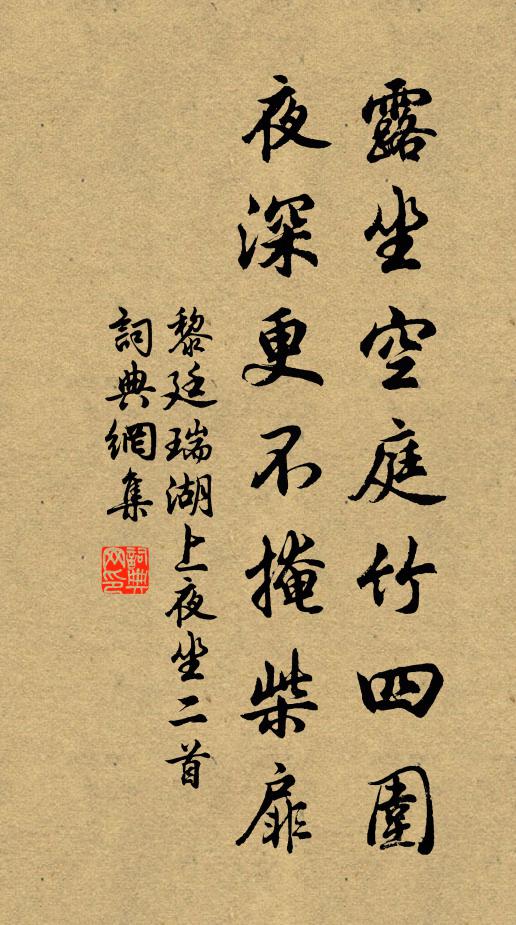 露坐空庭竹四圍
夜深更不掩柴扉
黎廷瑞湖上夜坐二首
詞典網集
詞典网印